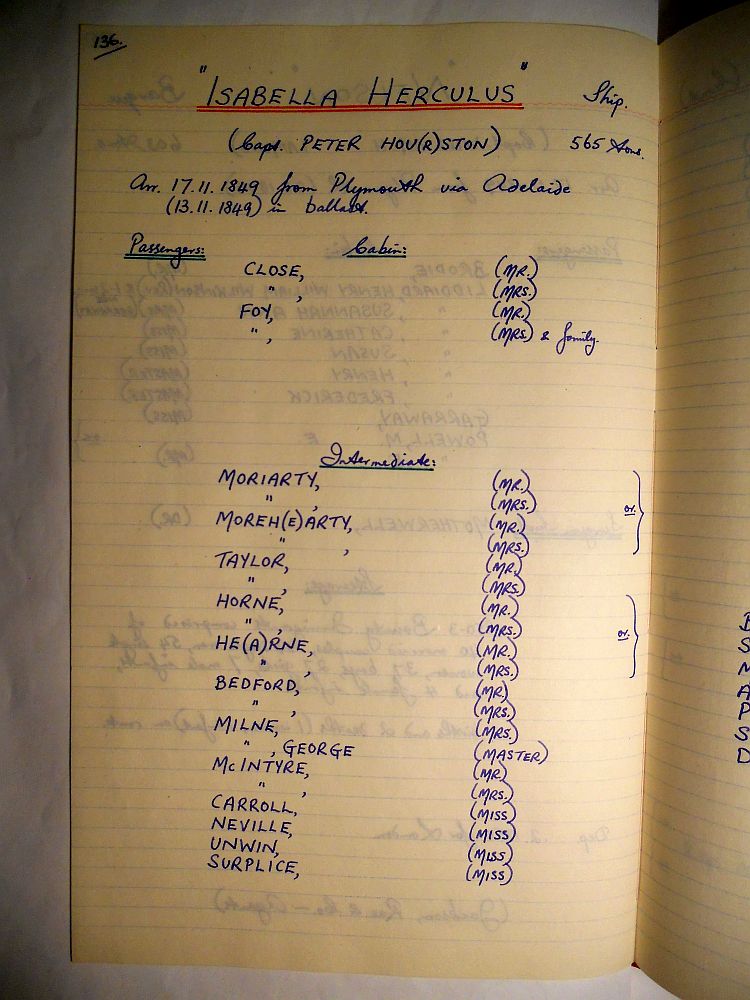 136.
"ISABELLA HERCULUS" Ship.
(Capt. PETER HOU(R)STON) 565 tons.
Arr. 17.11.1849 from Plymouth via Adelaide
(13.11.1849) in ballast.
Passengers: Cabin:
CLOSE, (MR.)
" , (MRS.)
FOY, (MR.)
" , (MRS.) & family.
Intermediate:
MORIARTY, (MR.)
" , (MRS.) or.
MOREH(E)ARTY, (MR.)
" , (MRS.)
TAYLOR, (MR.)
" , (MRS.)
HORNE, (MR.)
" , (MRS.) or.
HE(A)RNE, (MR.)
" , (MRS.)
BEDFORD, (MR.)
" , (MRS.)
MILNE, (MRS.)
" , GEORGE (MASTER)
McINTYRE, (MR.)
" , (MRS.)
CARROLL, (MISS)
NEVILLE, (MISS)
UNWIN, (MISS)
SURPLICE, (MISS)
B
S
M
A
P
S
D